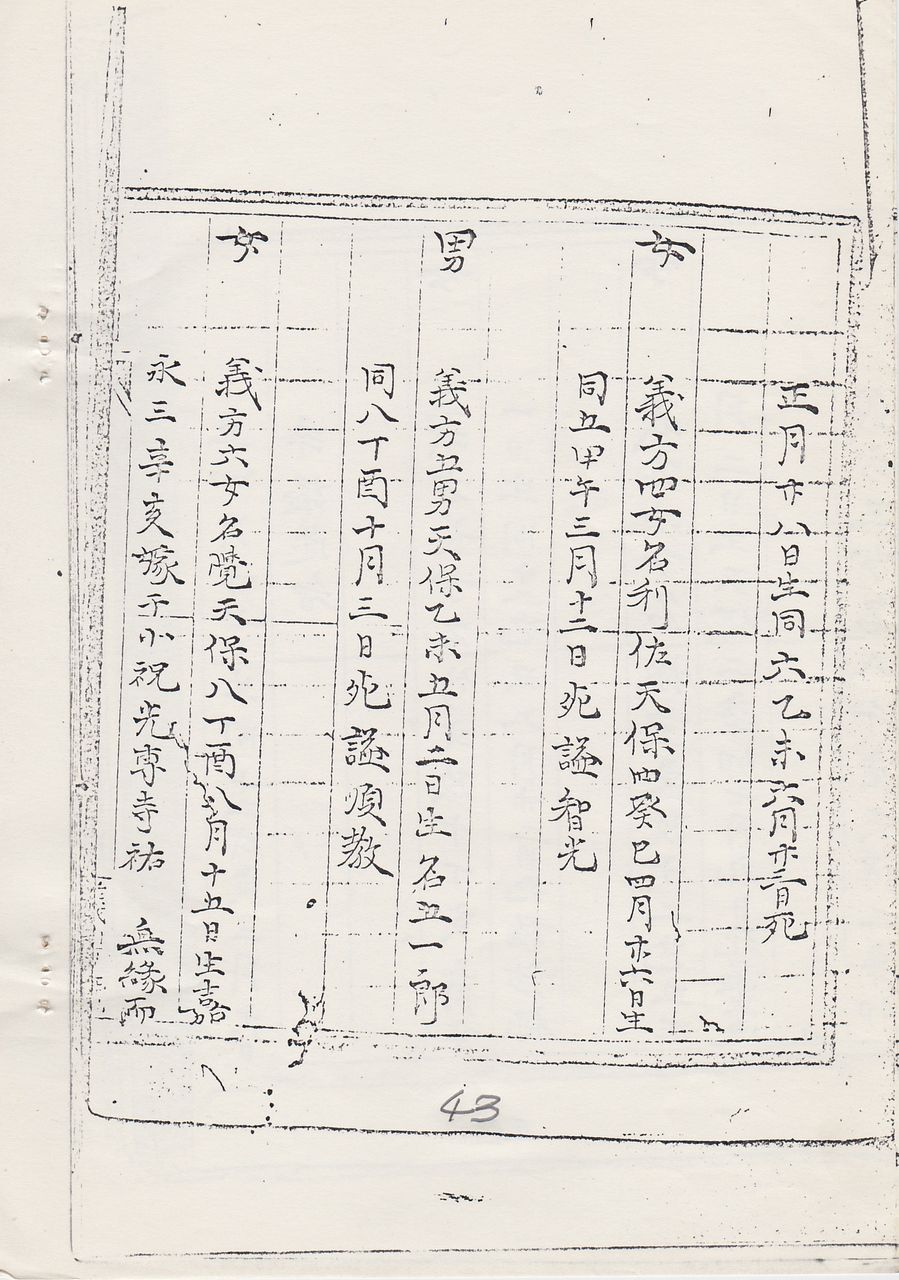 正月廿八日生同六乙未六月廿三日死
女
義方四女名利佐天保四癸巳四月廿六日生
同五甲午三月十二日死謚智光
男
義方五男天保乙未五月二日生名五一郎
同八丁酉十月三日死謚順教
女
義方六女名覺天保八丁酉八月十五日生嘉
永三辛亥嫁于小祝光専寺祐 無縁而
43